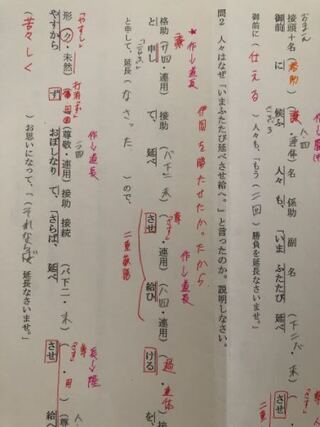 おまへ
接頭+名 格助 四・連体 名 係助 副 名 下二八・未
御前 に 候ふ 人々 も、「いま ふたたび 延べ させ
御前に(仕える)人々も、「もう(二回)勝負を延長なさいませ。」
問2 人々はなぜ「いまふたたび延べさせ給へ。」と言ったのか。説明しなさい。
伊周を勝たせたかったから
格助 (サ四・連用) 接助 (バ下二・未) 尊「さす」・連用 (ハ四・連用) (過・連体 接助
と 申し て、延べ させ 給ひ ける を、
と申して、延長(なさった)ので、
二重敬語
「やすし」 打消「ず」
形(ク・未然) (尊敬・連用) 接助 接続 (バ下二・未
やすから ず おぼしなり て、「さらば、延べ させ 給へ
(苦々しく)お思いになって、「(それならば)延長なさいませ。